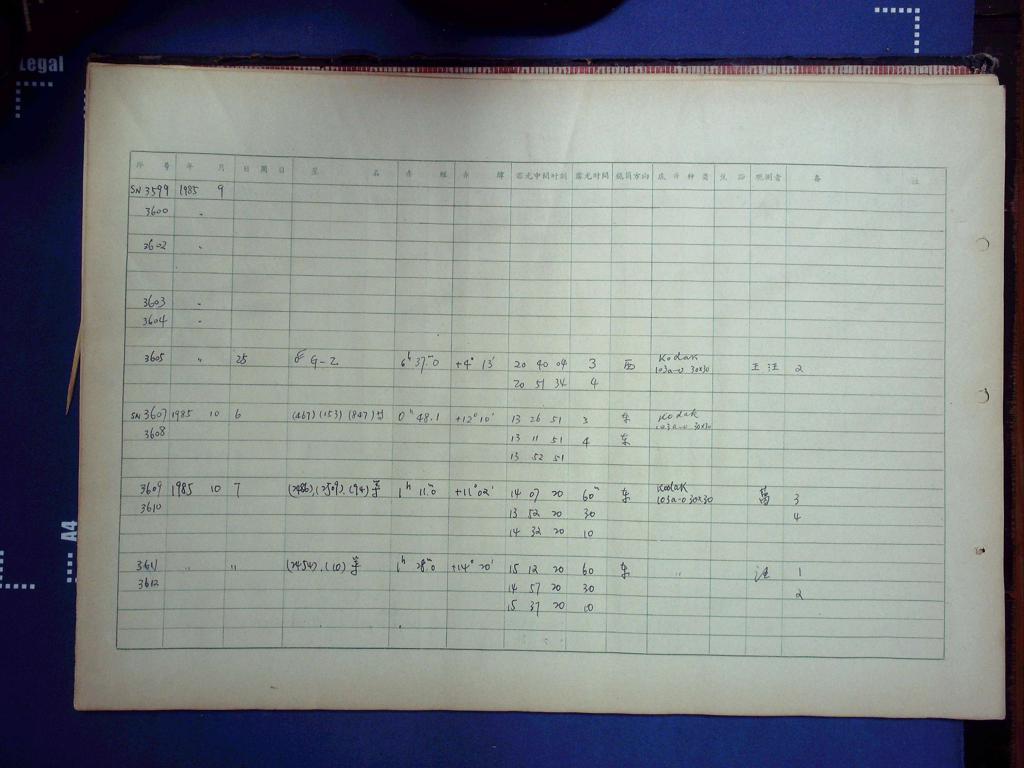 Legal
A4
序 号 年 月 日 期 日 星 名 赤 经 赤 纬 露光中间时刻 露光时间 镜筒方向 底片种类 观测者 备 注
SN 3599 1985 9
3600 〃
3602 〃
3603 〃
3604 〃
3605 〃 25 G-Z 6h 37m.0 +4° 13′ 20 40 04 3 西 Kodak 103a-O 30×30 王 汪 2
20 51 34 4
SN 3607 1985 10 6 (467) (153) (847) 0h 48.1 +12° 10′ 13 26 51 3 东 Kodak 103a-O 30×30
3608 13 11 51 4 东
13 52 51
3609 1985 10 7 (2486), (2509), (94) 等 1h 11m.0 +11° 02′ 14 07 20 60m 东 Kodak 103a-O 30×30 3
3610 13 52 20 30 4
14 32 20 10
3611 〃 〃 (2454), (10) 等 1h 28m.0 +14° 20′ 15 12 20 60 东 〃 汪 1
3612 14 57 20 30 2
15 37 20 10